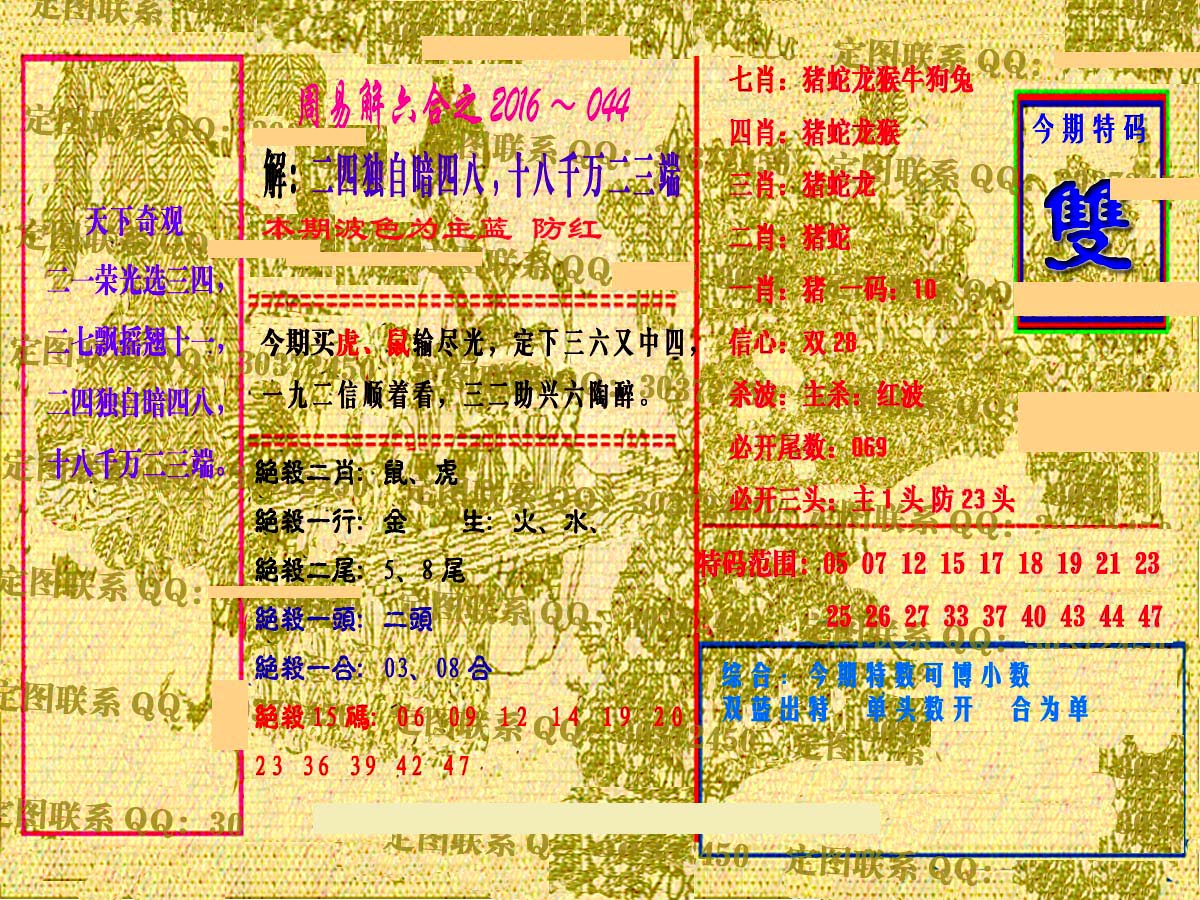 天下奇观
二一荣光选三四，
二七飘摇翘十一，
二四独自暗四八，
十八千万二三端。
周易解六合之 2016 ～ 044
解：二四独自暗四八，十八千万二三端
本期波色为主蓝 防红
今期买虎、鼠输尽光，定下三六又中四，
一九二信顺着看，三二助兴六陶醉。
絕殺二肖：鼠、虎
絕殺一行：金 生：火、水、
絕殺二尾：5、8尾
絕殺一頭：二頭
絕殺一合：03、08合
絕殺15碼：06 09 12 14 19 20
23 36 39 42 47
七肖：猪蛇龙猴牛狗兔
四肖：猪蛇龙猴
三肖：猪蛇龙
二肖：猪蛇
一肖：猪 一码：10
信心：双28
杀波：主杀：红波
必开尾数：069
必开三头：主1头防23头
今期特码
雙
特码范围：05 07 12 15 17 18 19 21 23
25 26 27 33 37 40 43 44 47
综合：今期特数可博小数
双蓝出特，单头数开 合为单